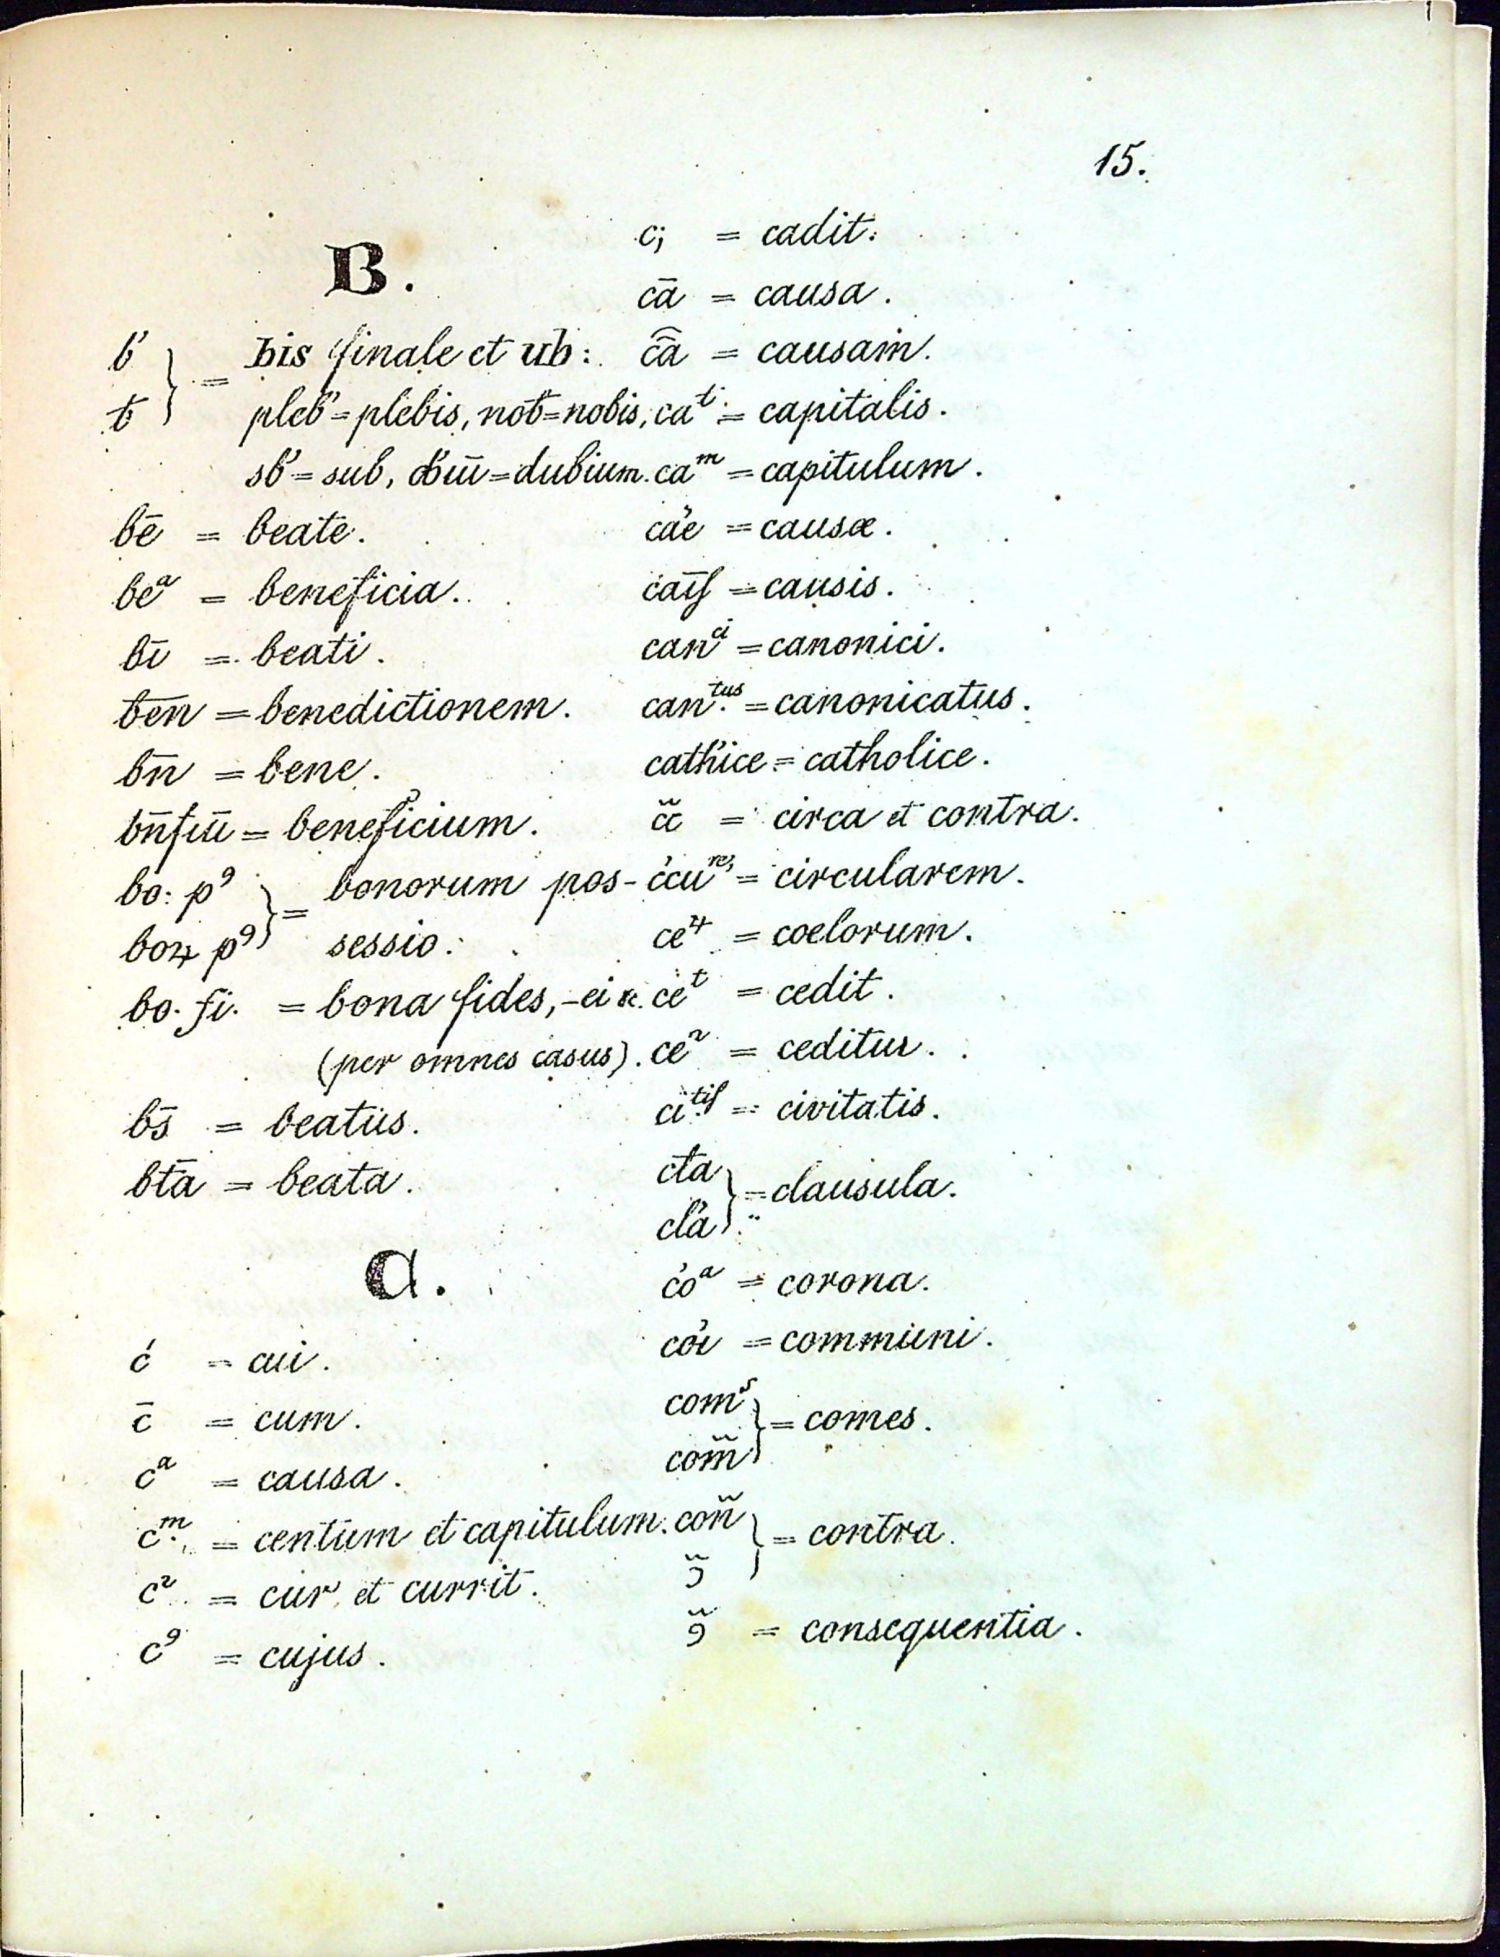 15.
B.
b' } = bis finale et ub:
ƀ
pleb' = plebis, nob̄ = nobis,
sb' = sub, db'ū = dubium.
bē = beate.
be^a = beneficia.
bī = beati.
b̄en̄ = benedictionem.
bn̄ = bene.
bn̄fiū = beneficium.
bo: p⁹ } = bonorum pos-
boꝝ p⁹ sessio.
bo. fi. = bona fides, -ei &.
(per omnes casus).
bs̄ = beatus.
btā = beata.
C.
c' = cui.
c̄ = cum.
c^a = causa.
c^m. = centum et capitulum.
c² = cur et currit.
c⁹ = cujus.
c; = cadit.
cā = causa.
c͡a = causam.
ca^t = capitalis.
ca^m = capitulum.
ca'e = causæ.
caīſ = causis.
can^ci = canonici.
can^tus. = canonicatus.
cath'ice = catholice.
cc̃ = circa et contra.
c'cu^re, = circularem.
ce^ꝝ = coelorum.
ce^t = cedit.
ce² = ceditur.
ci^tiſ = civitatis.
cƚa } = clausula.
cl'a
c'o^a = corona.
co'i = communi.
com^s } = comes.
com̃
coñ } = contra.
ɔ̃
ꝯ̃ = consequentia.